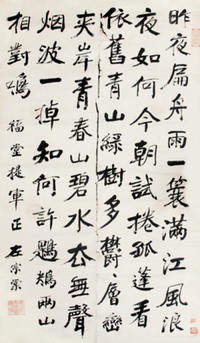 昨夜扁舟雨一簑滿江風浪
夜如何今朝試捲孤蓬看
依舊青山綠樹多欝〻層巒
夾岸青春山碧水去無聲
烟波一掉知何許鶗鴂兩山
相對鳴
福堂提軍正
左宗棠